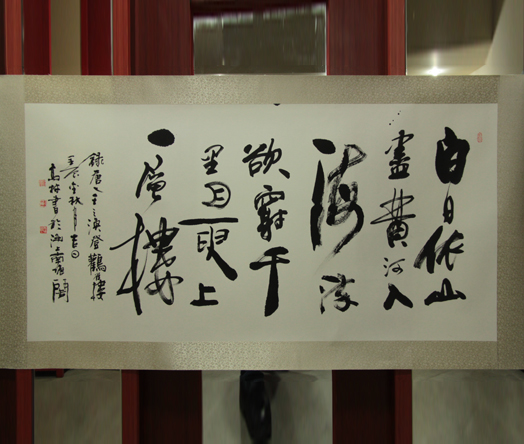 白日依山
盡黄河入
海流
欲窮千
里目更上
一層樓
錄唐人王之渙登鸛雀樓
壬辰年秋月吉日
書於